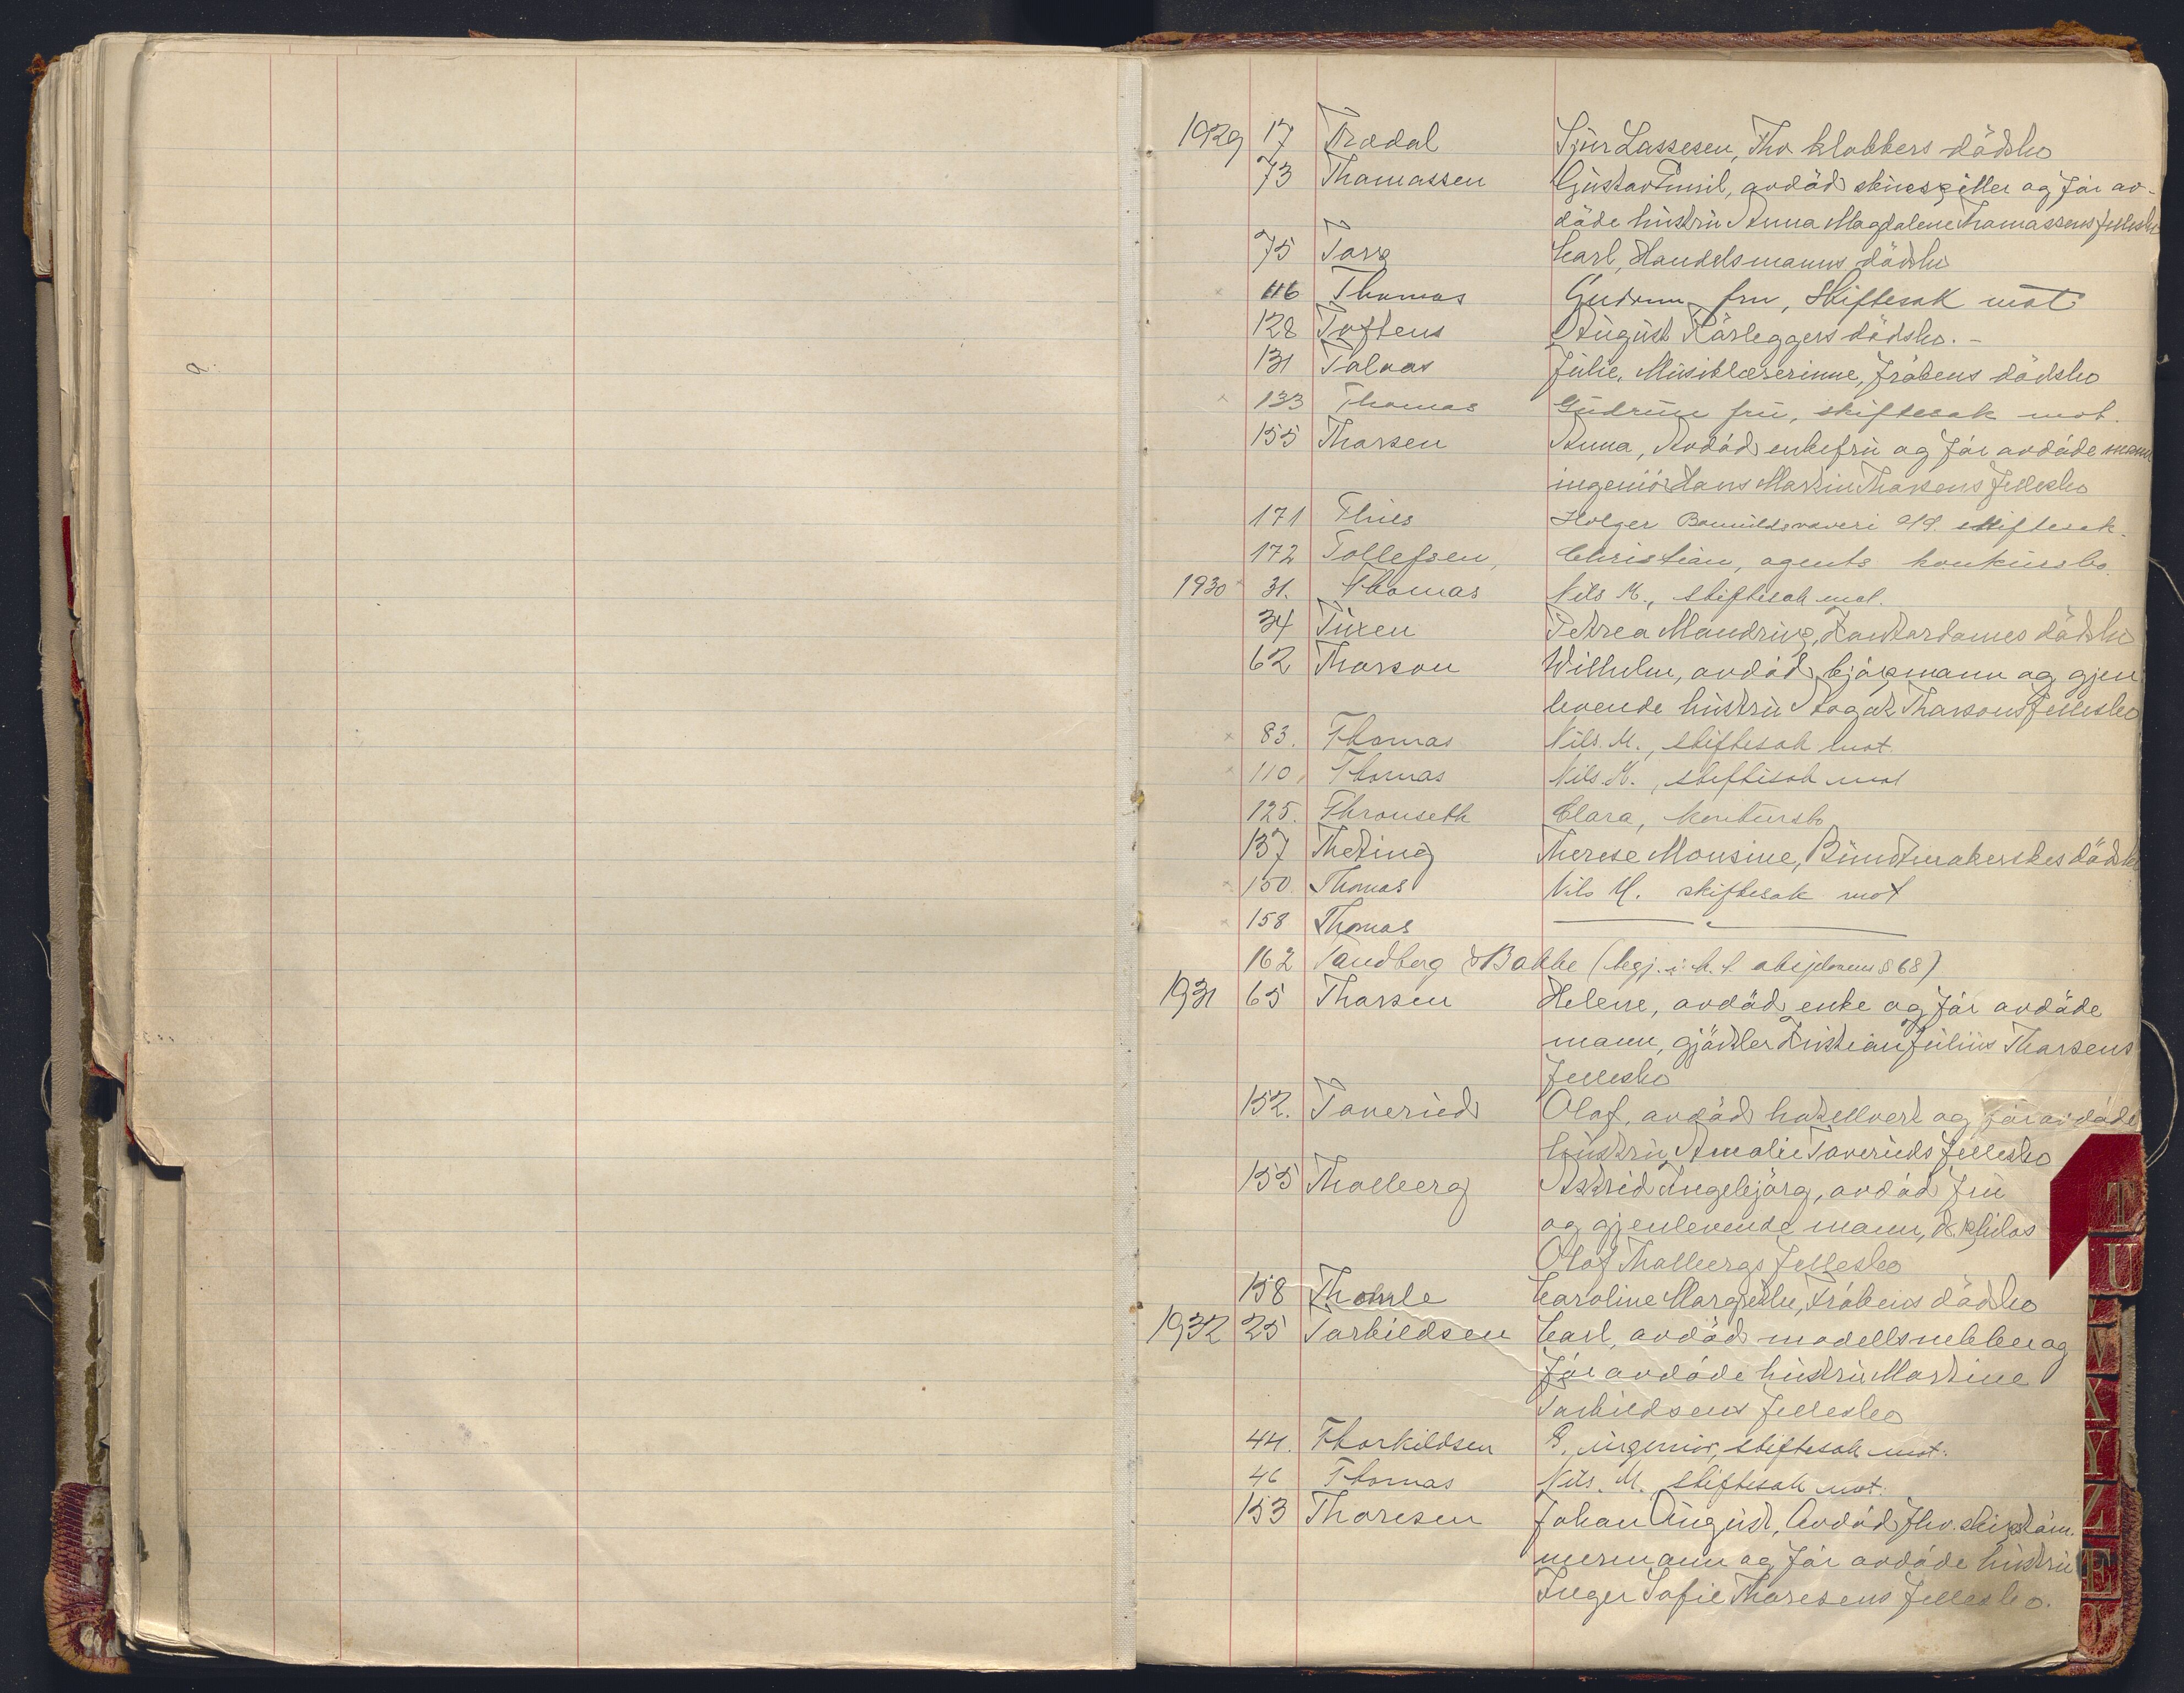 1929 17 Trædal Sjur Lassesen, Fhv klokkers dödsbo
73 Thomassen Gustav Emil, avdöd skuespiller ogför av-
döde hustru Anna Magdalene Thomassens fellesbo
75 Torp Carl, Handelsmanns dödsbo
116 Thomas Gudrun, fru, Skiftesak mot
128 Toftens August Rörleggers dödsbo. -
131 Talaas Julie, Musiklærerinne, Frökens dödsbo
133 Thomas Gudrun fru, skiftesak mot.
155 Thorsen Anna, Avdöd enkefru og för avdöde mann
ingeniör Hans Martin Thorsens fellesbo
171 Thies Holger Bomuldsvaveri A/S. skiftesak.
172 Tollefsen, Christian, agents konkursbo.
1930 31. Thomas Nils M., skiftesak mot.
34 Tuxen Petrea Mandrup, Kontordames dödsbo
62 Thorson Wilhelm, avdöd kjöpmann og gjen
levende hustru Aagot Thorsons fellesbo
83. Thomas Nils. M., skiftesak mot
110. Thomas Nils. M., skiftesak mot
125. Thronseth Clara, konkursbo
137 Theting Therese Monsine, Buntmakerskes dödsbo
150. Thomas Nils M. skiftesak mot
158 Thomas — " —
162 Tandberg & Bakke (begj. i. h. t. aksjelovens § 68)
1931 65 Thorsen Helene, avdöd enke og för avdöde
mann, gjörtler Kristian Julius Thorsens
fellesbo
152. Taverud Olaf, avdöd hotellvert og för avdöde
hustru Amalie Taveruds fellesbo
155 Tholberg Astrid Ingebjörg, avdöd fru
og gjenlevende mann,
Olaf Tholbergs fellesbo
158 Thomle Caroline Margrethe, Frökens dödsbo
1932 25 Torkildsen Carl, avdöd modellsnekker og
för avdöde hustru Martine
Torkildsens fellesbo
44. Thorkildsen E, ingeniör, skiftesak mot.
46 Thomas Nils. M. skiftesak mot.
153 Thoresen Johan August, Avdöd fhv. skipstöm.
mermann og för avdöde hustru
Inger Sofie Thoresens fellesbo.
T
U
V
X
Y
Z
Æ
Ø